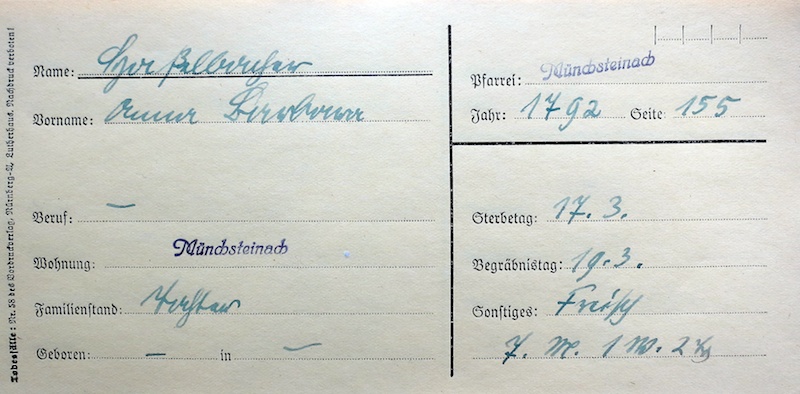 Name: Haßelbacher
Vorname: Anna Barbara
Beruf: —
Wohnung: Münchsteinach
Familienstand: Tochter
Geboren: — in —
Pfarrei: Münchsteinach
Jahr: 1792 Seite 155
Sterbetag: 17. 3.
Begräbnistag: 19. 3.
Sonstiges: Freisch
7. M. 1 W. 2 Tg
Todesfälle: Nr. 58 des Vordruckverlag, Nürnberg-A, Lutherhaus. Nachdruck verboten!